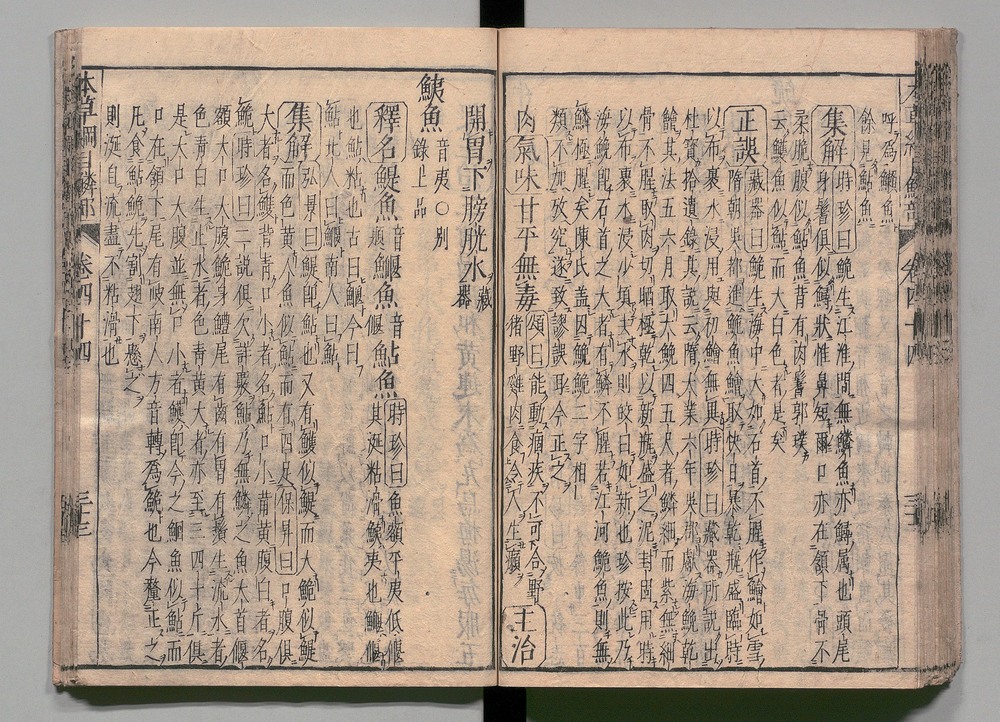 呼為鱯魚
餘見鮎魚
集解 時珍曰鮠生江淮間無鱗魚亦鱘属也頭尾
身鬐俱似鱘狀惟鼻短爾口亦在頷下骨不
柔脆腹似鮎魚背有肉鬐郭璞
云鱯魚似鮎而大白色者是矣
正誤 藏器曰鮠生海中大如石首不腥作鱠如雪
隋朝吳都進鮠魚鱠取快日曝乾瓶盛臨時
以布裹水浸用與初鱠無異時珍曰藏器所說出
杜寶拾遺錄其說云隋大業六年吳郡獻海鮸乾
鱠其法五六月取大鮸四五尺者鱗細而紫無細
骨不腥取肉切晒極乾以新瓶盛之泥封固用時
以布裹水浸少頃去水則皎白如新也珍按此乃
海鮸即石首之大者有鱗不腥若江河鮠魚則無
鱗極腥矣陳氏盖因鮸鮠二字相
類不加攷究遂致謬誤耳今正之
肉 氣味 甘平無毒 頌曰能動痼疾不可合野
猪野雞肉食令人生癩 主治
開胃下膀胱水 藏器
鮧魚 音夷○別錄上品
釋名 鯷魚 音題 鰋魚 音偃 鮎魚 時珍曰魚額平夷低偃
其涎粘滑鮧夷也鰋偃
也鮎粘也古曰鰋今曰
鮎北人曰鰋南人曰鮎
集解 弘景曰鯷即鮎也又有鱯似鯷而大鮠似鯷
而色黃人魚似鮎而有四足保昇曰口腹俱
大者名鱯背青口小者名鮎口小背黃腹白者名
鮠時珍曰二說俱欠詳覈鮎乃無鱗之魚大首偃
額大口大腹鮠身鱧尾有齒有胃有鬚生流水者
色青白生止水者色青黃大者亦至三四十斤俱
是大口大腹並無口小者鱯即今之鮰魚似鮎而
口在頷下尾有岐南人方音轉為鮠也今釐正之
凡食鮎鮠先割翅下懸之
則涎自流盡不粘滑也
本草綱目鱗部
卷四十四
三十三